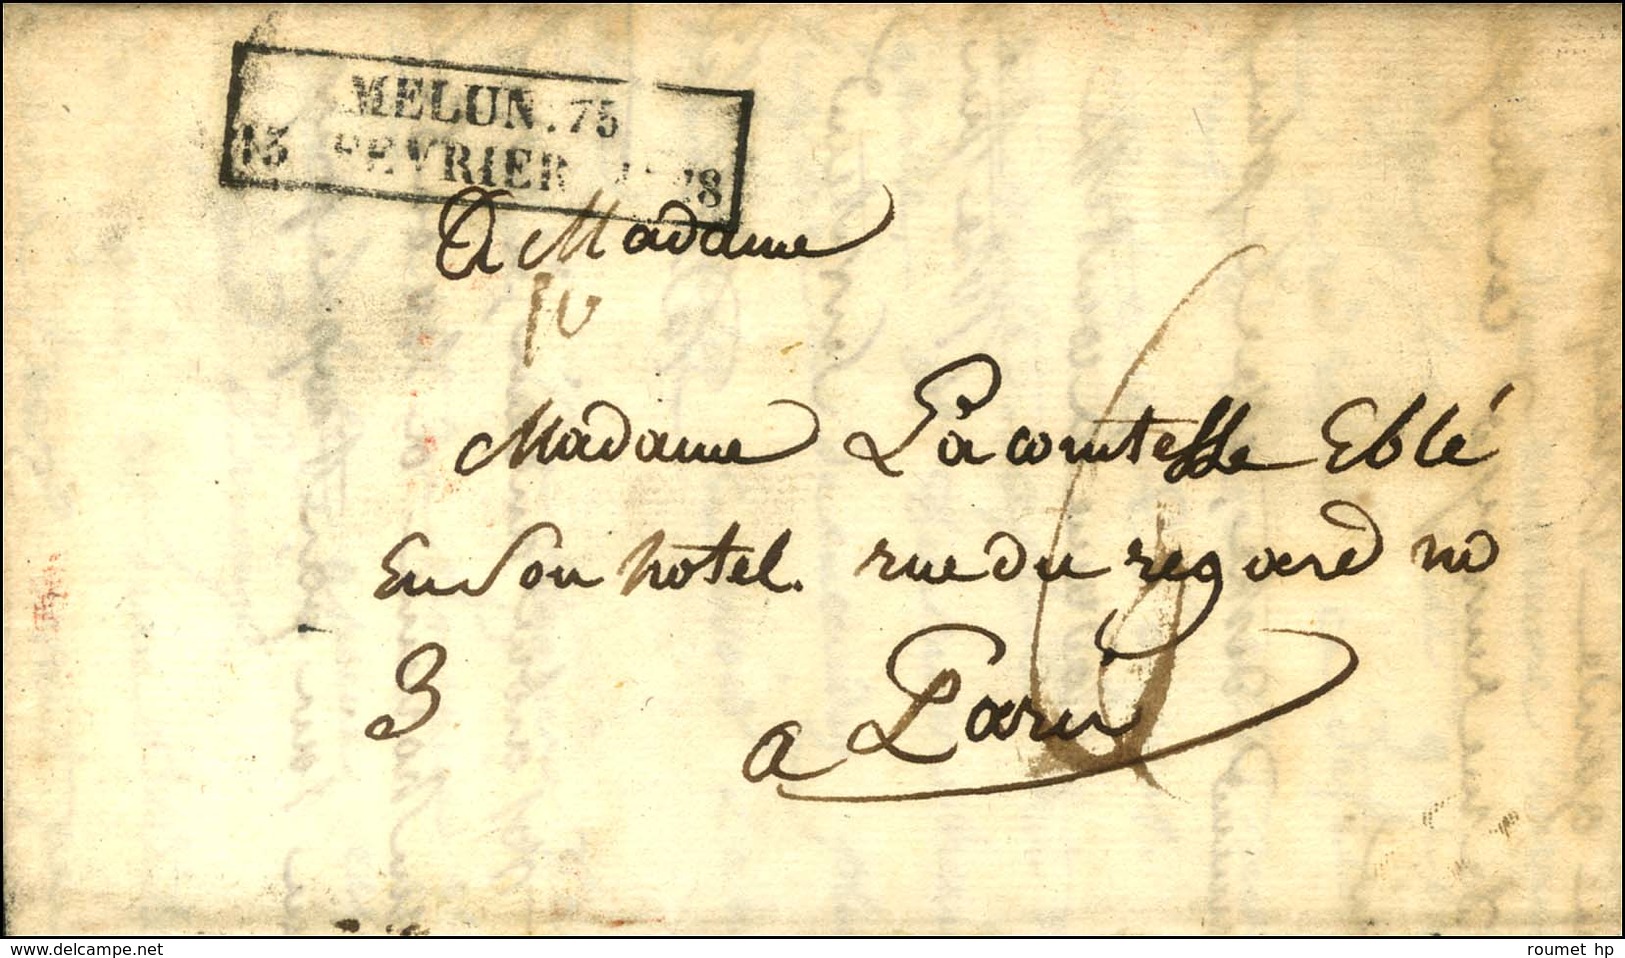 MELUN.75
FEVRIER
A Madame
10
Madame La comtesse Eblé
En son hôtel. rue du regard no
3
a Paris
www.delcampe.net
roumet hp